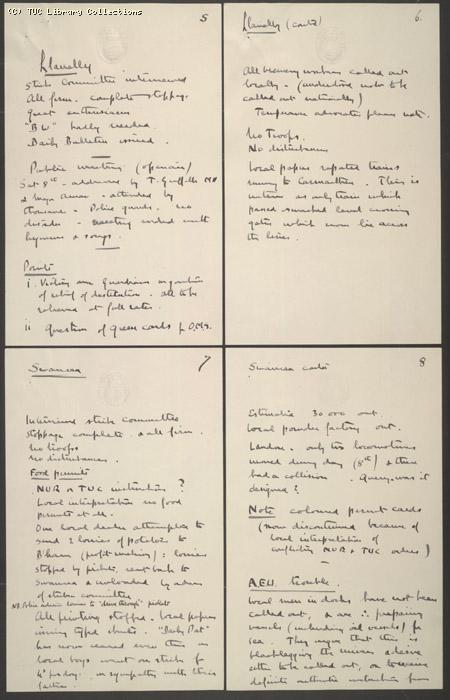 (C) TUC Library Collections
5
Llanelly
Strike Committee interviewed
All firm. Complete stoppage.
Great enthusiasm
"BW" badly needed.
Daily Bulletin issued.
Public meeting (open air)
Sat 8th - addressed by T. Griffiths MP
& - attended by
thousands. Police guards. no
disorder - meeting ended with
hymns & songs.
Points
i. Victims are Guardians in question
of relief of destitution. all to be
relieved at full rates.
ii question of green cards for O.M.S.
6.
Llanelly (contd)
All brewery workers called out
locally - (understood not to be
called out nationally)
Temperance advocates please note.
No Troops.
No disturbances
Local papers reported trains
running to Carmarthen. This is
untrue as only train which
passed smashed level crossing
gates which now lie across
the lines.
7
Swansea
Interviewed strike committee
stoppage complete & all firm.
No troops
No disturbances.
Food permits
- NUR or TUC instructions?
Local interpretation no food
permits at all.
One local dealer attempted to
send 2 lorries of potatoes to
B'ham (profit making): lorries
stopped by pickets, sent back to
Swansea & unloaded by orders
of strike committee.
NB. Police advise lorries to "drive through" pickets
All printing stopped. Local papers
issuing typed sheets. "Daily Post"
has now ceased even this as
local boys went on strike for
in sympathy with their
fathers.
8
Swansea contd
Estimated 30 000 out.
Local powder factory out.
Landore. only two locomotives
moved during day (8th) & these
had a collision. Query, was it
designed?
Note coloured permit cards
(now discontinued because of
local interpretation of
conflicting NUR & TUC orders)
A.E.U. trouble.
Local men in docks have not been
called out, & are ∴ preparing
vessels (including oil vessels) for
sea. They argue that this is
blacklegging the miners & desire
either to be called out, or to receive
definite authentic instructions from